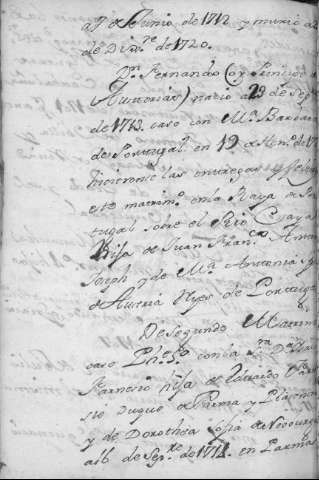 a 7 de Junio de 1712 y murio a
de Diz.re de 1720.
Dn. Fernando (oy Principe d
Austurias) nacio a 23 de Sep.
de 1713. caso con Ma. Barbara
de Portugal en 19 de En.o de 17
hicieronse las entregas y se
este matrim.o en la Raya de Por
tugal sobre el Rio Caya
hija de Juan Fran.co Anton
Joseph y de Ma. Antonia
de Austria Reyes de Portugal
De segundo Matrim
caso Phe. 5o. con la Sra. Da.
Farnesio hija de Eduardo Far
sio Duque de Parma y Placen
y de Dorothea Sofia de Neoburg
a 16 de Sepre. de 1714. en Parma